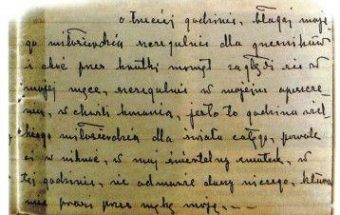 o trzeciej godzinie, błagaj moje-
go miłosierdzia szczegulnie dla grzeszników
i choć przez krutki momęt zagłębi sie w
mojej męce, szczegulnie w mojem opuszcze-
niu, w chwili konania, jest to godzina wiel-
kiego miłosierdzia dla świata całego, pozwole
ci w niknąć, w muj śmiertelny smutek, w
tej godzinie, nie odmuwie duszy niczego, która
mnie prosi przez mękę moję, . —